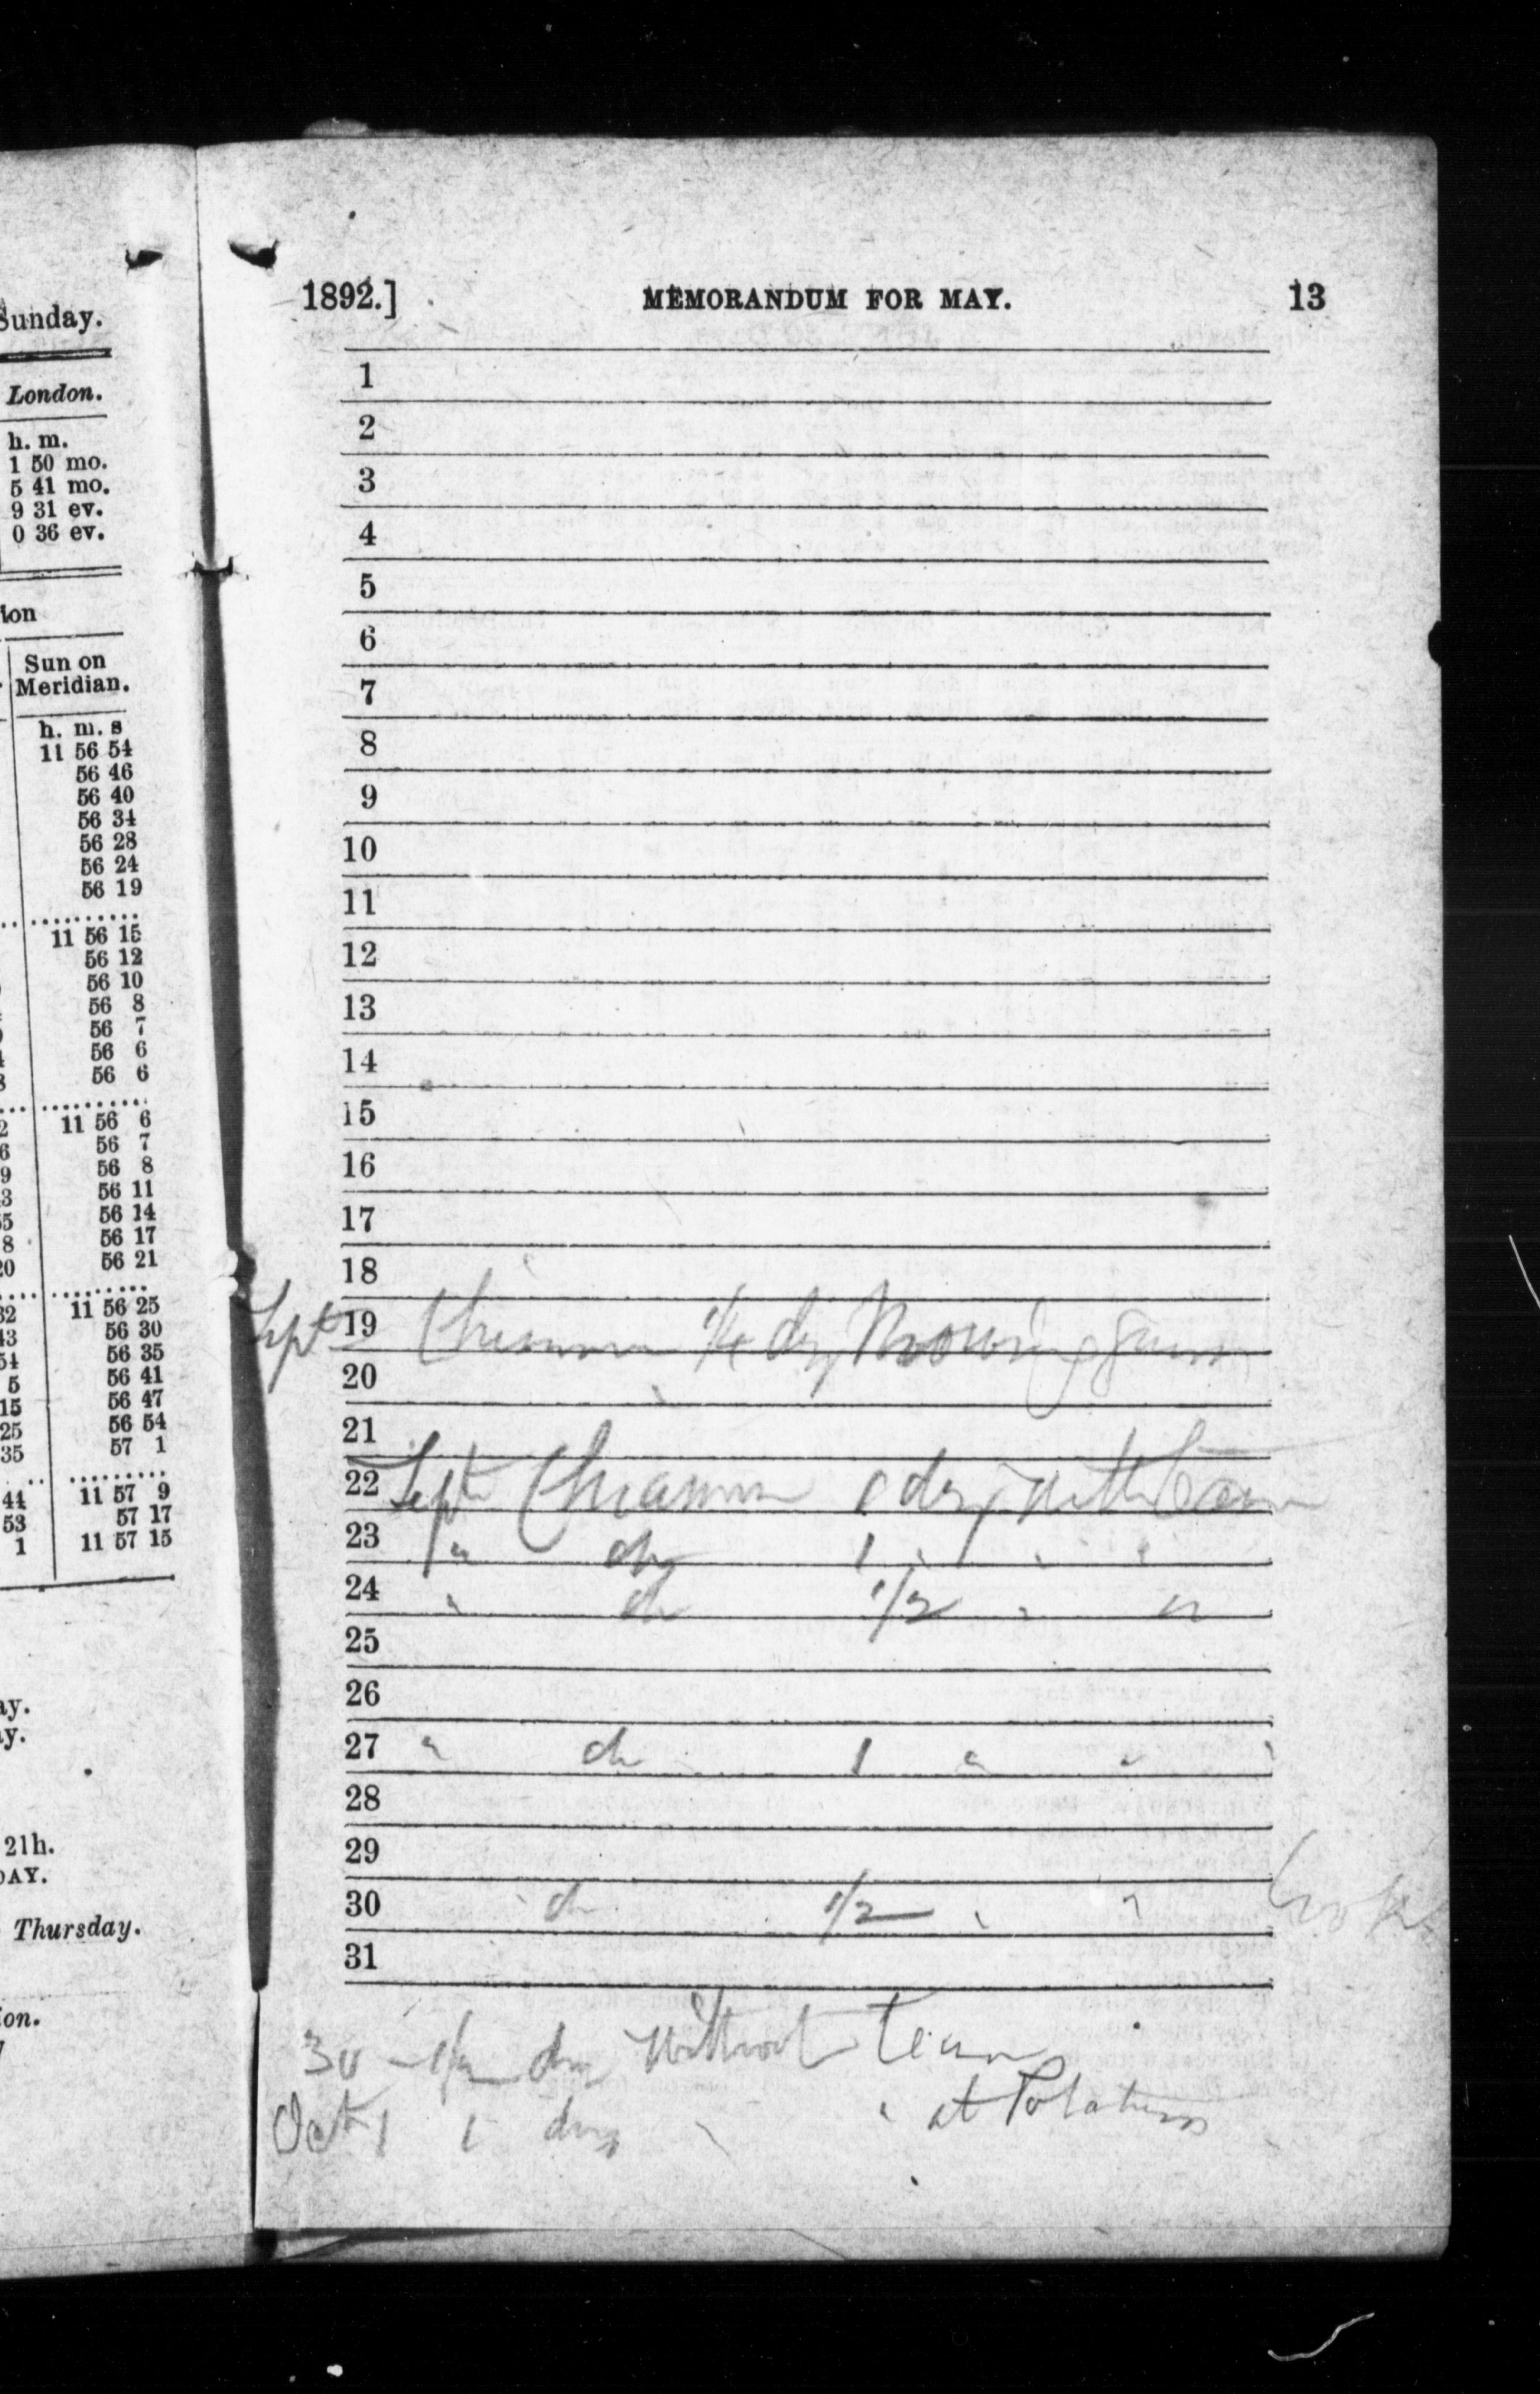 Sunday.
London.
h. m.
1 50 mo.
5 41 mo.
9 31 ev.
0 36 ev.
ion
Sun on
Meridian.
h. m. s
11 56 54
56 46
56 40
56 34
56 28
56 24
56 19
11 56 15
56 12
56 10
56 8
56 7
56 6
56 6
2 11 56 6
6 56 7
9 56 8
3 56 11
55 56 14
8 56 17
20 56 21
32 11 56 25
43 56 30
54 56 35
5 56 41
15 56 47
25 56 54
35 57 1
44 11 57 9
53 57 17
1 11 57 15
ay.
ay.
21h.
DAY.
Thursday.
ion.
1892.] MEMORANDUM FOR MAY. 13
1
2
3
4
5
6
7
8
9
10
11
12
13
14
15
16
17
18
Sept 19 Mowing
20
21
22 Sept 1 day with Team
23 " do 1 " " "
24 " do 1/2 " "
25
26
27 " do 1 " " "
28
29
30 " do 1/2 " "
31
30 - 1/2 day Without Team
Oct 1 1 day " " at Potatoes